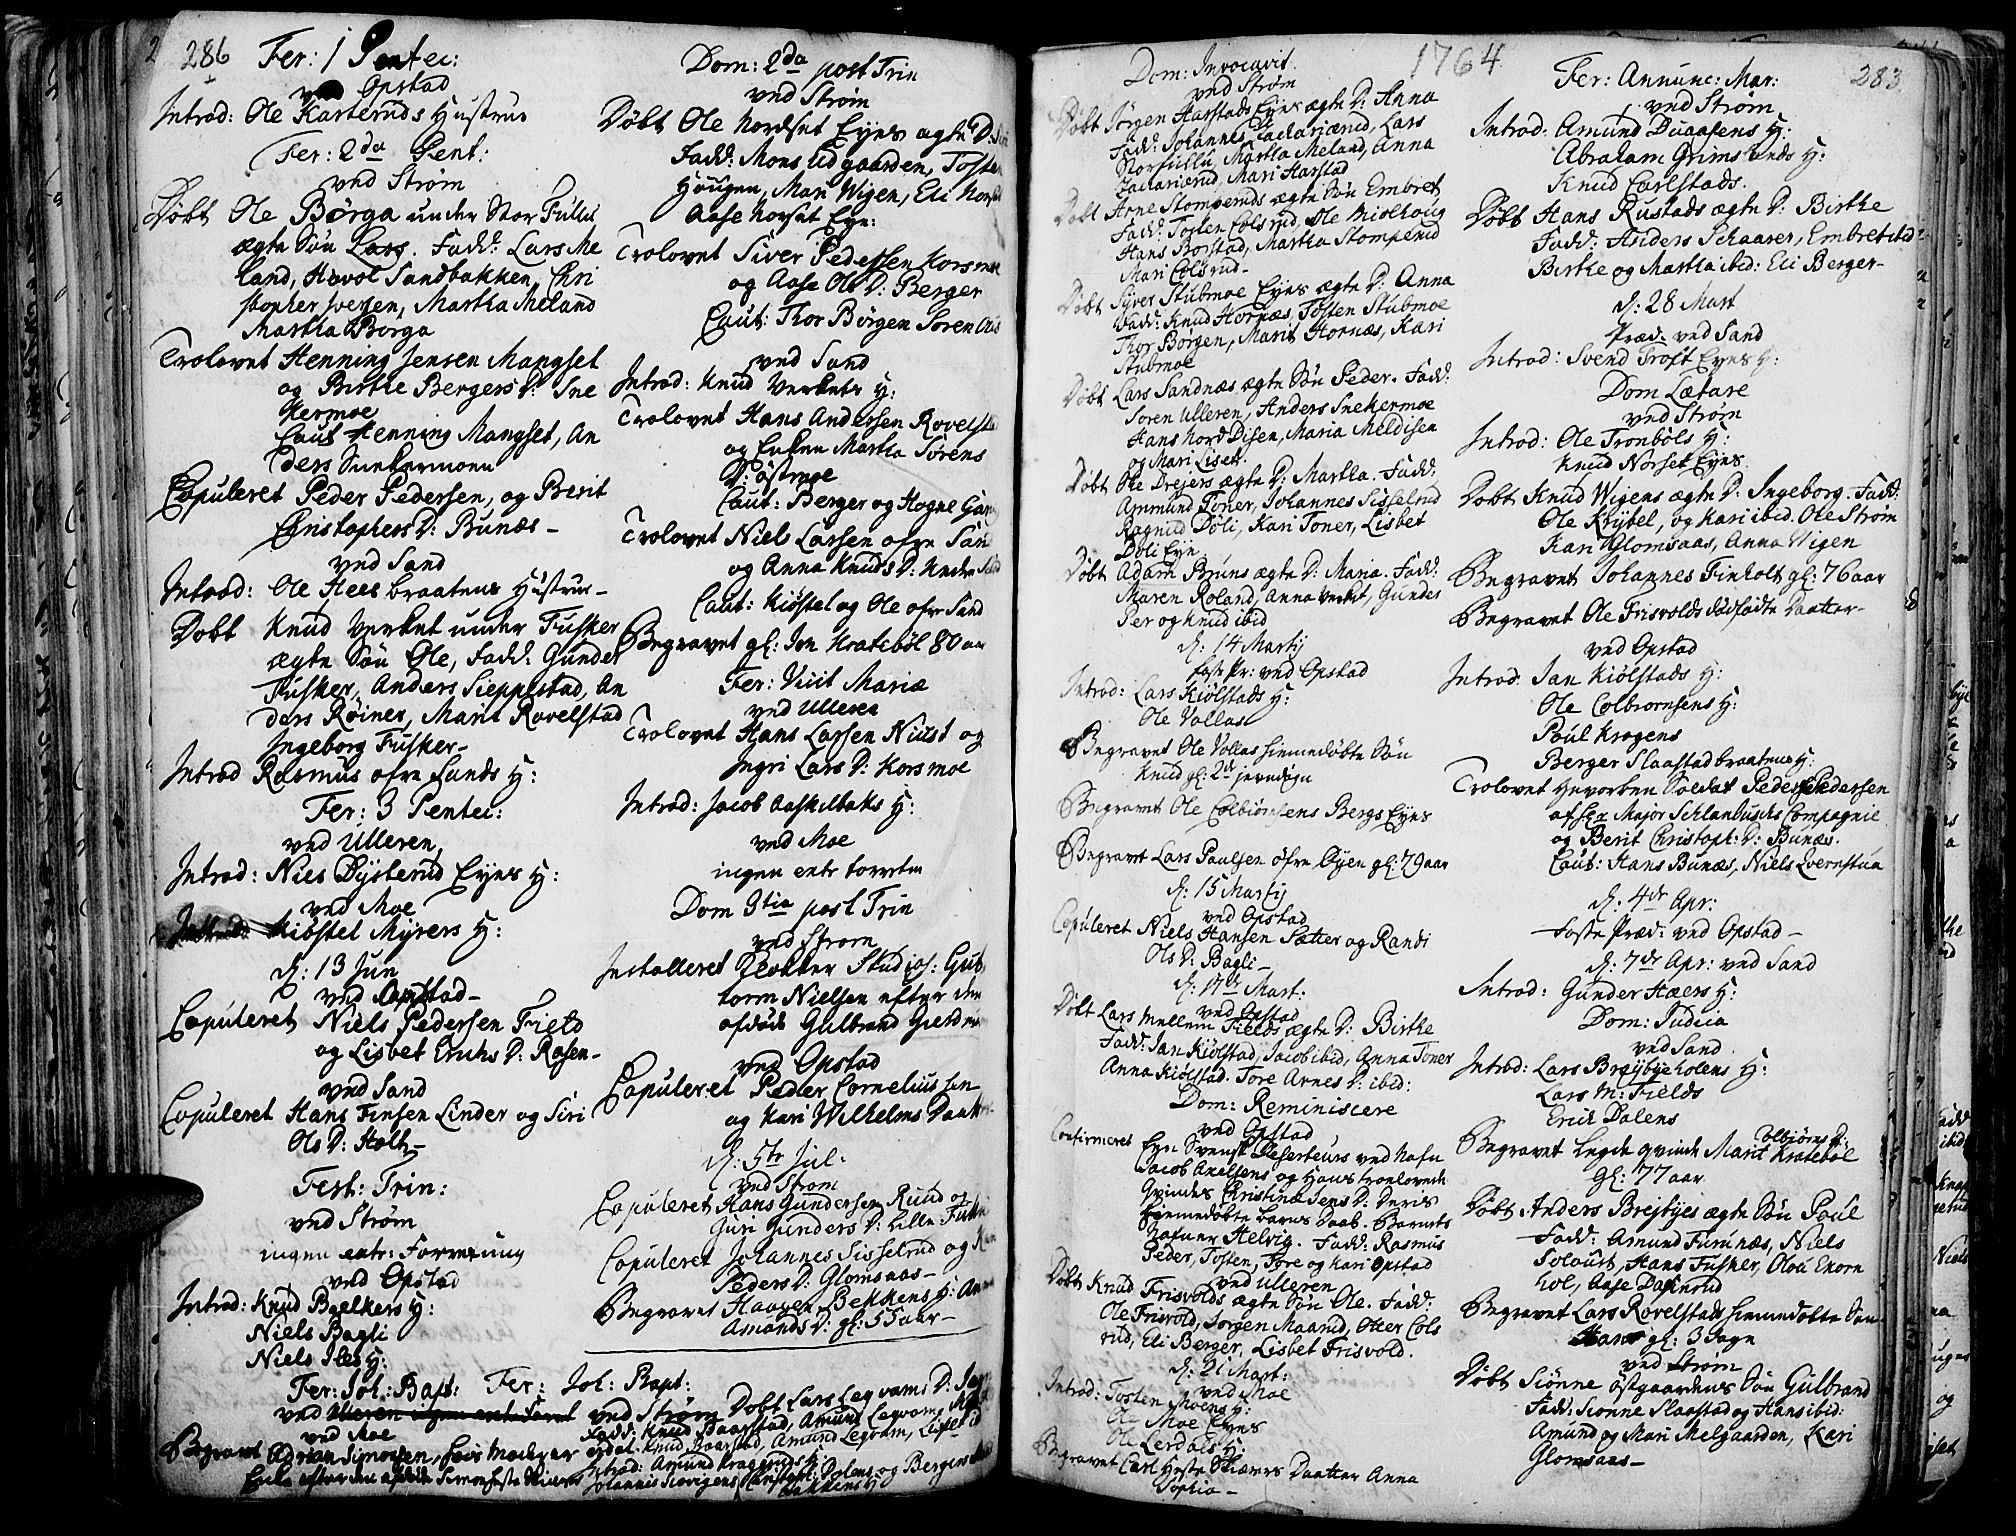 286
Fer: 1 Pentec:
ved Opstad
Introd: Ole Karteruds Hustrue
Fer: 2da Pent:
ved Strøm
Døbt Ole Børga under Stor Fulle
ægte Søn Lars. Fadd: Lars Me
land, Havol Sandbakken, Chri
stopher Iversen, Martha Meland
Martha Borga
Trolovet Henning Jensen Mangset
og Birthe Bergers D: Sne
Kermoe
Caut Henning Mangset, An
ders Snekermoen
Copuleret Peder Pedersen, og Berit
Christophers D: Bunæs -
ved Sand
Introd: Ole Hees braatens Hustrue -
Døbt Knud Verket under Fusker
ægte Søn Ole, Fadd: Gunder
Fusker, Anders Seppestad, An
ders Røiner, Marit Rovelstad
Ingeborg Fusker -
Introd Rasmus ofre Sands H:
Fer: 3 Pentec:
ved Ulleren
Introd: Niels Dysterud Eyes H:
ved Moe
Kiøstel Myrers H:
d: 13 Jun
ved Opstad -
Copuleret Niels Pedersen Field
og Lisbet Erichs D: Rosen -
ved Sand
Copuleret Hans Finsen Linder og Siri
Ols D: Holt -
Fest: Trin:
ved Strøm
ingen extr: Forretning
ved Opstad
Introd: Knud Bælkers H:
Niels Bagli
Niels Iles H:
Fer: Joh: Bapt:
ved Ulleren ingen extr: Forret
ved Moe
Begravet Adrian Simonsen,
Dom: 2da post Trin
ved Strøm
Døbt Ole Nordset Eyes ægte D:
Fadd: Mons Udgaarden, Tosten
Hougen, Mari Wigen, Eli Norset
Aase Norset Eye:
Trolovet Siver Pedersen Korsmoe
og Aase Ols D: Berger
Caut: Thor Børgen Soren
ved Sand
Introd: Knud Verkets H:
Trolovet Hans Andersen Rovelstad
og Enken Martha Sørens
D: Østmoe
Caut: Berger og Hogne
Trolovet Niels Larsen ofre Sand
og Anna Knuds D: Nedre Sand
Caut: Kiøstel og Ole ofre Sand
Begravet gl: Jon Kratebøl 80 aar
Fer: Visit Mariæ
ved Ulleren
Trolovet Hans Larsen Niust og
Ingri Lars D: Korsmoe
Introd: Jacob Aaskilbaks H:
ved Moe
ingen extr forretn
Dom 3tia post Trin
ved Strøm
Installeret Klokker Studios: Gut
torm Nielsen efter den
afdøde Gulbrand Gieldm
ved Opstad
Copuleret Peder Corneliussen
og Kari Wilhelms Daatter
d: 5te Jul:
ved Strøm
Copuleret Hans Gundersen Ruud og
Guri Gunders D: Lille Fulle
Copuleret Johannes Sisselrud og
Peders D: Glomsaas -
Begravet Haagen Bekkens H: Anne
Amunds D: gl: 55 aar -
Fer: Joh: Bapt:
ved Strøm Døbt Lars Legvams D:
Fadd: Knud Baarstad, Amund Legvam,
Introd: Amund Kraggeruds H:
1764
283
Dom: Invocavit.
ved Strøm
Døbt Jørgen Harstads Eyes ægte D: Anna
Fadd: Johannes Zachariærud, Lars
Storfulle, Martha Meland, Anna
Zachariærud, Mari Harstad
Døbt Arne Stomperuds ægte Søn Embret
Fadd: Tosten Colsrud, Ole Miolhoug
Hans Borstad, Martha Stomperud
Mari Colsrud -
Døbt Syver Stubmoe Eyes ægte D: Anna
Fadd: Knud Hornæs, Tosten Stubmoe
Thor Børgen, Marit Hornæs, Kari
Stubmoe
Døbt Lars Sandnæs ægte Søn Peder. Fadd:
Soren Ulleren, Anders Snekermoe
Hans Nord Disen, Maria Meldisen
og Mari Liset.
Døbt Ole Drejers ægte D: Martha. Fadd:
Ammund Toner, Johannes Sisselrud
Ragnild Døli, Kari Toner, Lisbet
Døli Eye
Døbt Adam Bruns ægte D: Maria. Fadd:
Maren Roland, Anna Verket, Gunder
Per og Knud ibid
d: 14 Martij
faste Pr: ved Opstad
Introd: Lars Kiølstads H:
Ole Vollas
Begravet Ole Vollas hiemmedøbte Søn
Knud gl: 2de jevndøgn
Begravet Ole Colbiørnsens Bergs Eyes
Begravet Lars Paulsen øfre Øyen gl: 79 aar
d: 15 Martij
ved Opstad
Copuleret Niels Hansen Sætter og Randi
Ols D: Bagli -
d: 17de Mart:
ved Opstad
Døbt Lars mellem Fields ægte D: Birthe
Fadd: Jan Kiølstad, Jacob ibid, Anna Toner
Anna Kiølstad. Tore Arnes D: ibid:
Dom: Reminiscere
ved Opstad
Confirmeret Eyn Svensk Deserteurs ved nafn
Jacob Axelsens og Hans troelovede
Qvindes Christina Jens D: Deris
hiemmedøbte barns Daab. Barnets
Nafn er Helvig. Fadd: Rasmus
Peder, Tosten, Tore og Kari Opstad
ved Ulleren
Døbt Knud Frisvolds ægte Søn Ole. Fadd:
Ole Frisvold, Jørgen Maarud, Otter Cols
rud, Eli Berger, Lisbet Frisvold.
d: 21 Mart:
ved Moe
Introd: Tosten Moens H:
Ole Moe Eyes
Ole Lerdals H:
Begravet Carl Heste Skiærers Daatter Anna
Sophia -
Fer: Annunc: Mar:
ved Strøm
Introd: Amund Duaasens H:
Abraham Grimsruds H:
Knud Carlstads.
Døbt Hans Rustads ægte D: Birthe
Fadd: Anders Schaarer, Embret ibid
Birthe og Martha ibid: Eli Berger -
d: 28 Mart
Præd: ved Sand
Introd: Svend Troft Eyes H:
Dom Lætare
ved Strøm
Introd: Ole Tronbøls H:
Knud Norset Eyes
Døbt Knud Wigens ægte D: Ingeborg. Fadd:
Ole Krybel, og Kari ibid. Ole Strøm
Kari Glomsaas, Anna Wigen
Begravet Johannes Finholt gl: 76 aar
Begravet Ole Frisvolds dødfødte Daatter -
ved Opstad
Introd. Jan Kiølstads H:
Ole Colbiørnsens H:
Poul Krogens
Berger Slaastadbraatens H:
Trolovet Hevorben Soldat Peder Pedersen
af Hr Major Schlanbusch's Compagnie
og Berit Christoph: D: Bunæs.
Caut: Hans Bunæs, Niels Evernstua
d: 4de Apr:
Faste Præd: ved Opstad -
d: 7de Apr: ved Sand
Introd: Gunder Haers H:
Dom: Judica
ved Sand
Introd: Lars Brøybyeholens H:
Lars M: Fields
Erich Dalens
Begravet Legde qvinde Marit Kratebøl
Colbjørns D:
gl: 77 aar
Døbt Anders Brejbyes ægte Søn Poul
Fadd: Amund Furunæs, Niels
Solaust, Hans Fusker, Olou Ekorn
hol, Aase Daknrud
Begravet Lars Rovelstads hiemmedøbte Søn
Hans gl: 3 Dage
ved Strøm
Døbt Siønne Østgaardens Søn Gulbrand
Fadd: Sionne Slaastad og Hans ibid:
Amund og Mari Melgaarden, Kari
Glomsaas -